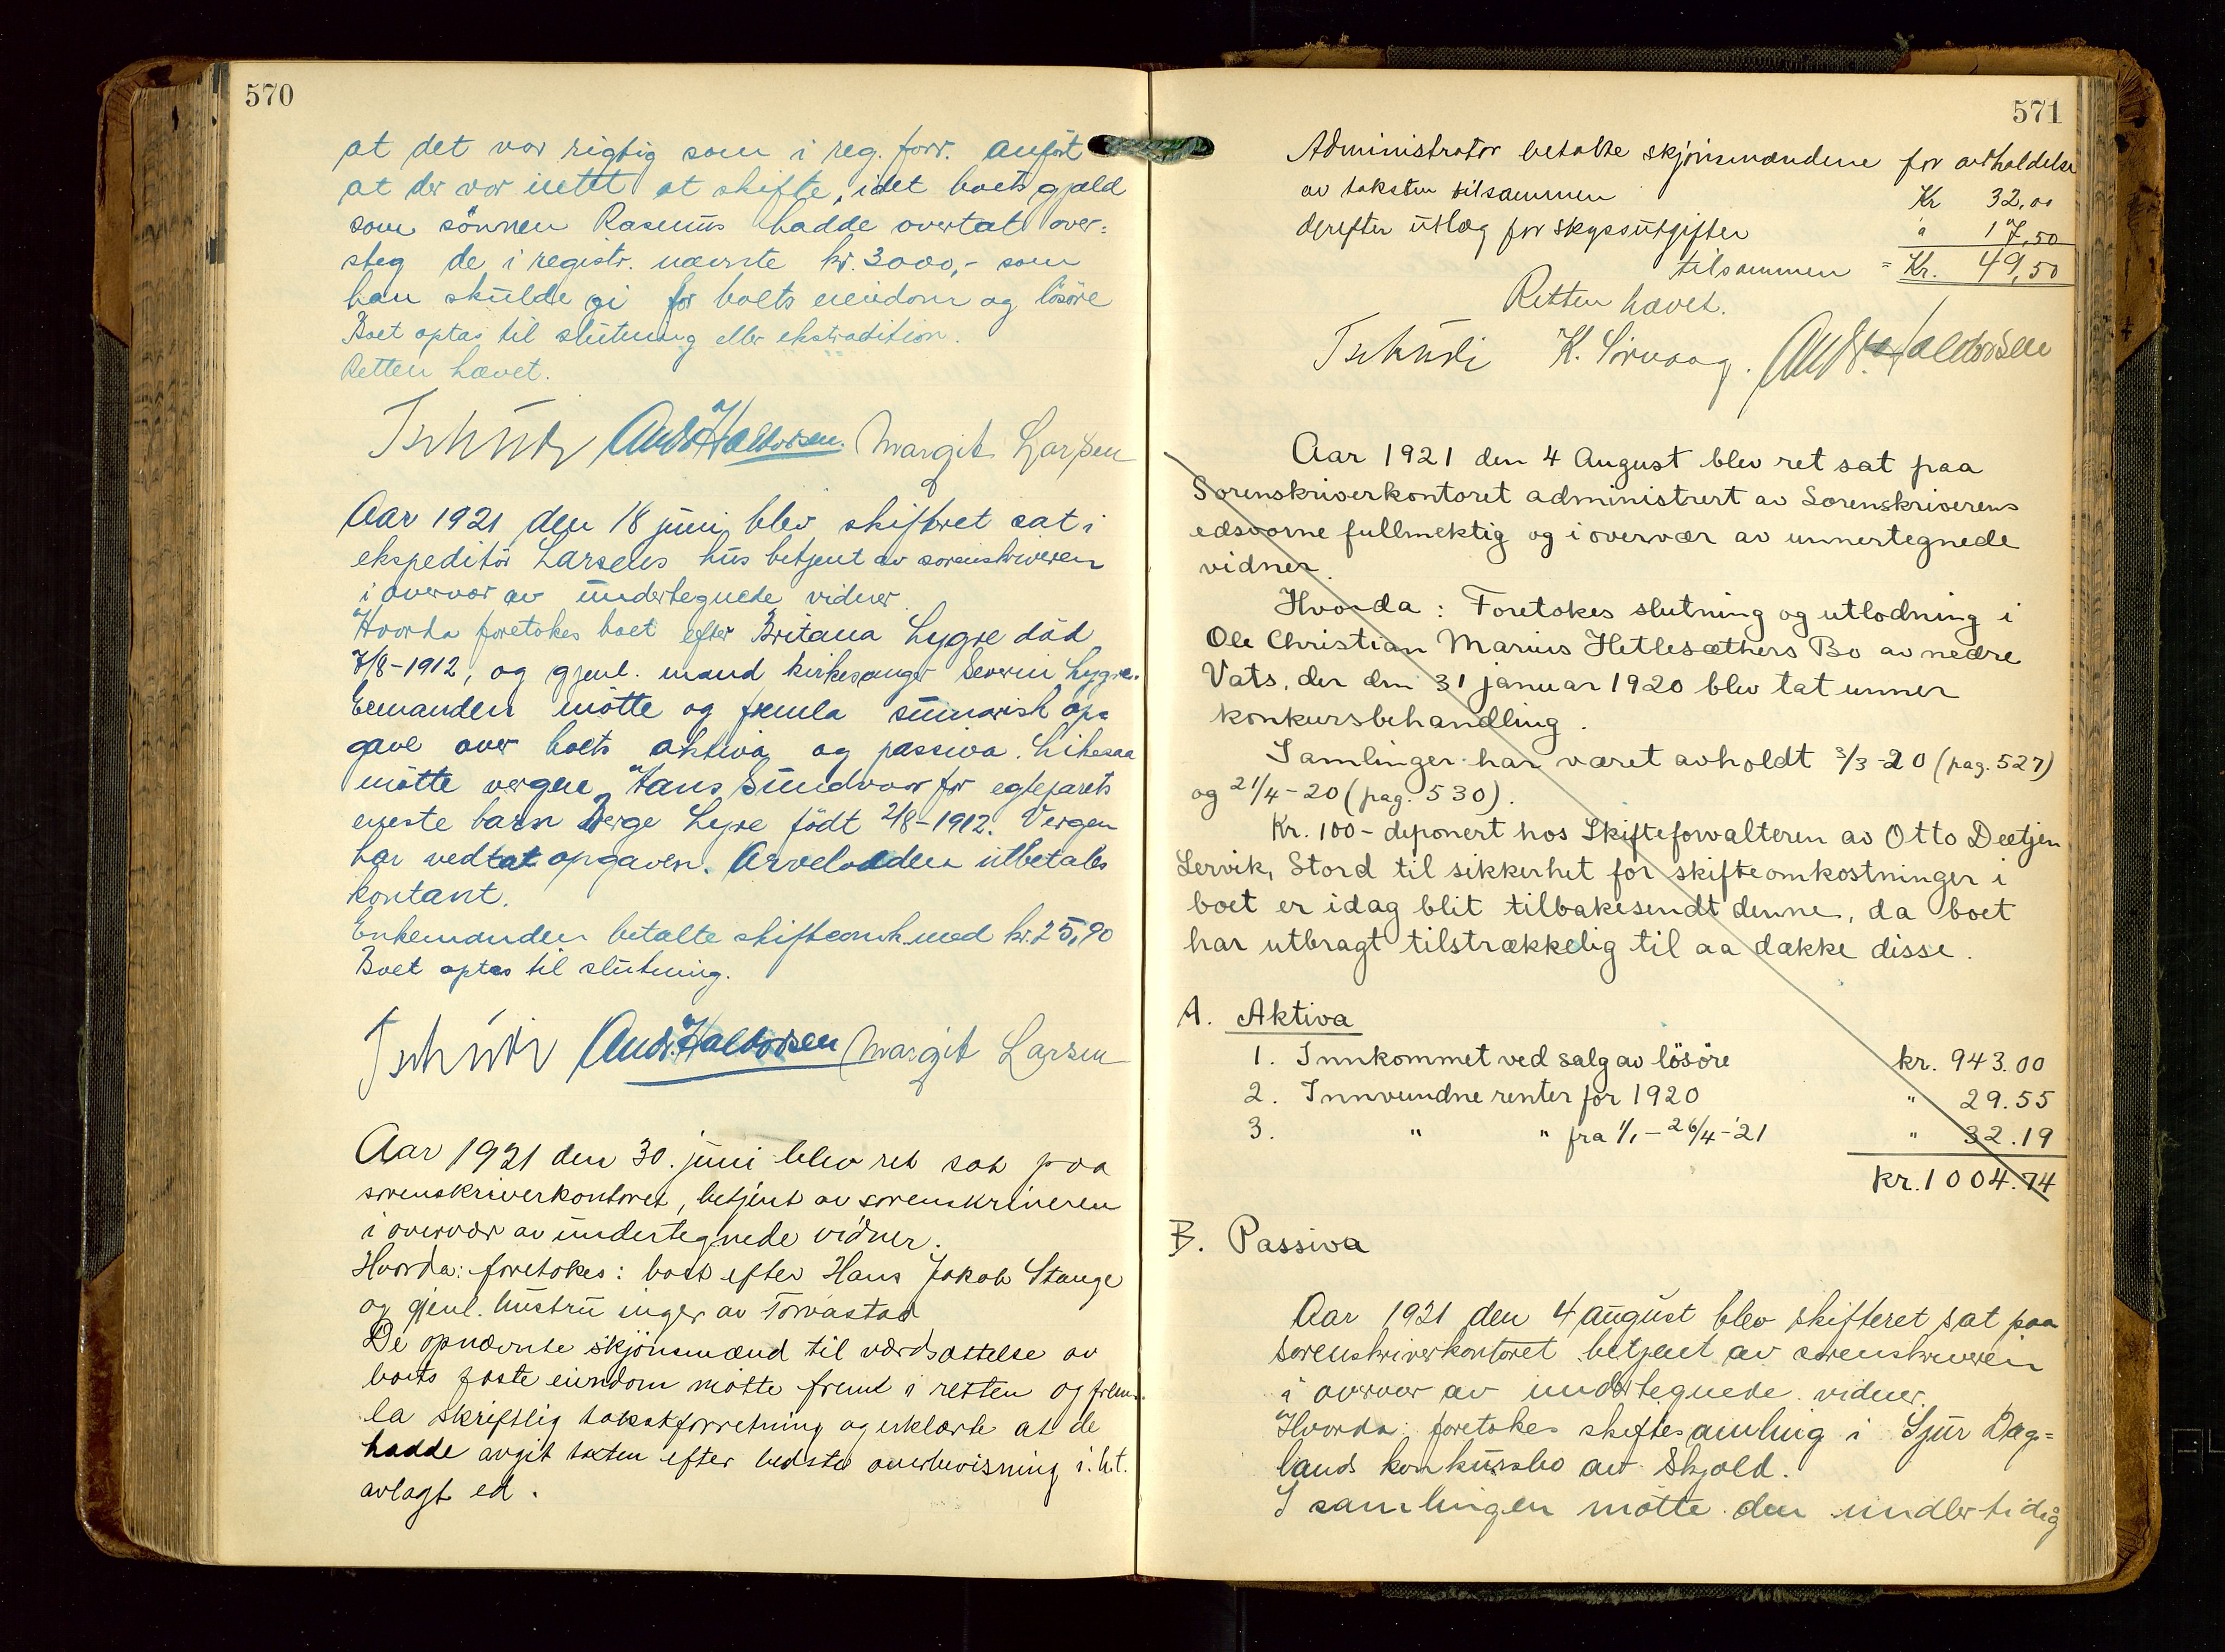 570
at det var rigtig som i reg. forr. anført
at der var intet at skifte, idet boets gjæld
som sönnen Rasmus hadde overtat over=
steg de i registr. nævnte kr. 3000,- som
han skulde gi for boets eiendom og lösöre
Boet optas til slutning eller ekstradition.
Retten hævet.
Tschudi Andr Halvorsen. Margit Larsen
Aar 1921 den 18 juni blev skifteret sat i
ekspeditör Larsens hus betjent av sorenskriveren
i overvær av undertegnede vidner
Hvorda foretokes boet efter Britana Lygre död
7/8-1912, og gjenl. mand kirkesanger Severin Lygre.
Eemanden mötte og fremla summarisk op=
gave over boets aktiva og passiva. Likesaa
mötte vergen Hans Sundvor for egteparets
eneste barn Berge Lygre födt 2/8-1912. Vergen
har vedtat opgaven. Arvelodden utbetales
kontant.
Enkemanden betalte skifteomk. med kr. 25,90
Boet optas til slutning.
Tschudi Andr. Halvorsen Margit Larsen
Aar 1921 den 30. juni blev ret sat paa
sorenskriverkontoret, betjent av sorenskriveren
i overvær av undertegnede vidner.
Hvorda: foretokes: boet efter Hans Jakob Stange
og gjenl. hustru inger av Torvastad
De opnævnte skjönsmænd til værdsættelse av
boets faste eiendom møtte frem i retten og frem-
la skriftlig takstforretning og erklærte at de
hadde avgit taxten efter bedste overbevisning i. h. t.
avlagt ed.
571
Administrator betalte skjönsmændene for avholdelse
av taksten tilsammen Kr 32,00
derefter utlæg for skyssutgifter " 17,50
tilsammen = Kr. 49,50
Retten hævet.
Tschudi K. Sirvaag. Andr. Halvorsen
Aar 1921 den 4 August blev ret sat paa
Sorenskriverkontoret administrert av Sorenskriverens
edsvorne fullmektig og i overvær av unnertegnede
vidner.
Hvorda: Foretokes slutning og utlodning i
Ole Christian Marius Hetlesæthers Bo av nedre
Vats, der den 31 januar 1920 blev tat unner
konkursbehandling.
Samlinger har været avholdt 3/3-20 (pag. 527)
og 21/4-20 (pag. 530).
Kr. 100- deponert hos Skifteforvalteren av Otto Deetjen
Lervik, Stord til sikkerhet for skifteomkostninger i
boet er idag blit tilbakesendt denne, da boet
har utbragt tilstrækkelig til aa dække disse.
A. Aktiva
1. Innkommet ved salg av lösöre kr. 943.00
2. Innvundne renter for 1920 " 29.55
3. " " fra 1/1-26/4-'21 " 32.19
kr. 1004.74
B. Passiva
Aar 1921 den 4 august blev skifteret sat paa
sorenskriverkontoret betjent av sorenskriveren
i overvær av undertegnede vidner.
Hvorda: foretokes skiftesamling i Sjur Dag=
lands konkursbo av Skjold.
I samlingen mötte den midlertidig